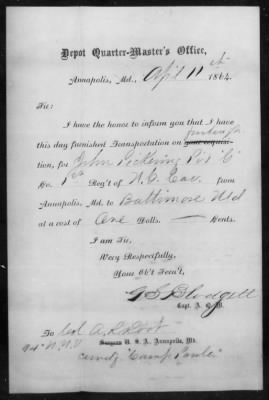 Depot Quarter-Master's Office,
Annapolis, Md., April 11th 1864.
Sir:
I have the honor to inform you that I have
furlough
this day furnished Transportation on your requisition, for John Pickering Pvt "C"
Co. 1st Reg't of N.C. Cav. from
Annapolis, Md. to Baltimore Md
at a cost of One Dolls. — Cents.
I am Sir,
Very Respectfully,
Your Ob't Serv't,
G S Blodgett
Capt. A. Q. M.
To Col A. R. Root
94" N.Y.V Surgeon U. S. A., Annapolis, Md.
Comdg "Camp Parole"